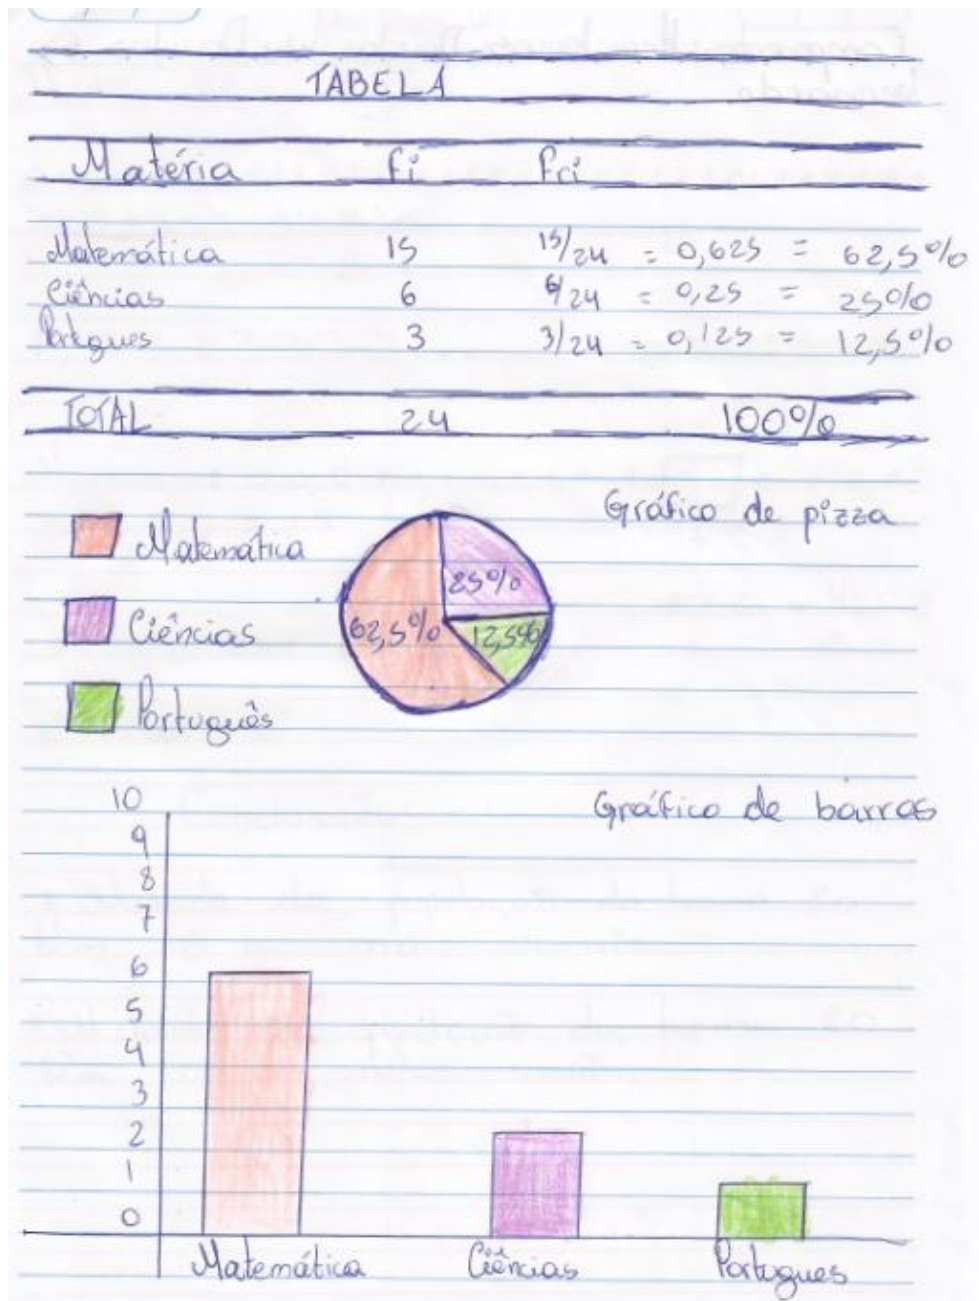 TABELA
Matéria fi fri
Matemática 15 15/24 = 0,625 = 62,5%
Ciências 6 6/24 = 0,25 = 25%
Portgues 3 3/24 = 0,125 = 12,5%
TOTAL 24 100%
Gráfico de pizza
Matemática
Ciências
Português
25%
62,5% 12,5%
Gráfico de barras
10
9
8
7
6
5
4
3
2
1
0
Matemática Ciências Portugues